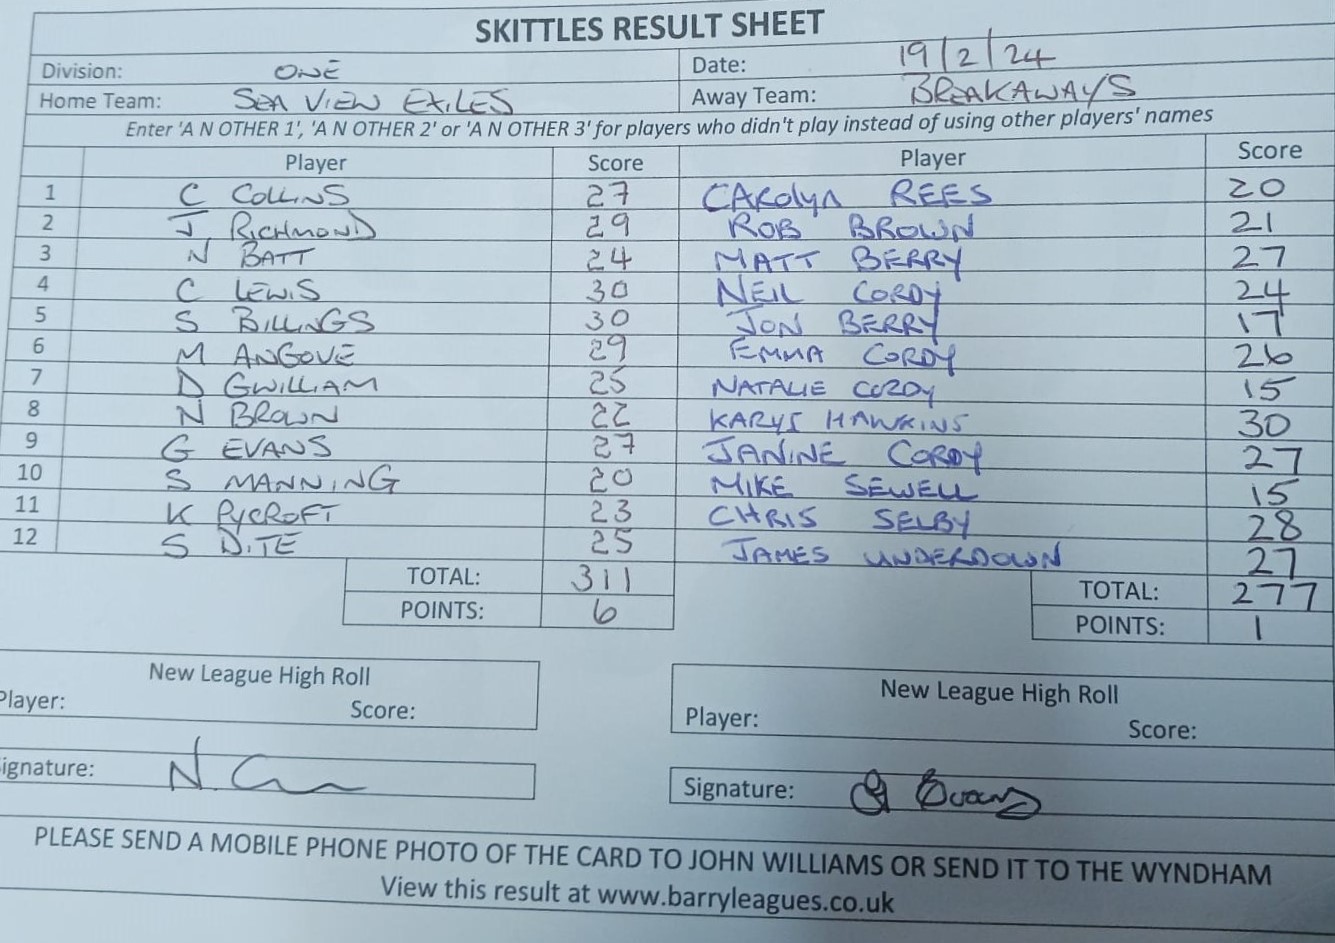 SKITTLES RESULT SHEET
Division: ONE Date: 19/2/24
Home Team: SEA VIEW EXILES Away Team: BREAKAWAYS
Enter 'A N OTHER 1', 'A N OTHER 2' or 'A N OTHER 3' for players who didn't play instead of using other players' names
Player Score Player Score
1 C COLLINS 27 CAROLYN REES 20
2 J RICHMOND 29 ROB BROWN 21
3 N BATT 24 MATT BERRY 27
4 C LEWIS 30 NEIL CORDY 24
5 S BILLINGS 30 JON BERRY 17
6 M ANGOVE 29 EMMA CORDY 26
7 D GWILLIAM 25 NATALIE CORDY 15
8 N BROWN 22 KARYS HAWKINS 30
9 G EVANS 27 JANINE CORDY 27
10 S MANNING 20 MIKE SEWELL 15
11 K PYCROFT 23 CHRIS SELBY 28
12 S DITE 25 JAMES UNDERDOWN 27
TOTAL: 311 TOTAL: 277
POINTS: 6 POINTS: 1
New League High Roll New League High Roll
Player: Score: Player: Score:
Signature: Signature: G Evans
PLEASE SEND A MOBILE PHONE PHOTO OF THE CARD TO JOHN WILLIAMS OR SEND IT TO THE WYNDHAM
View this result at www.barryleagues.co.uk